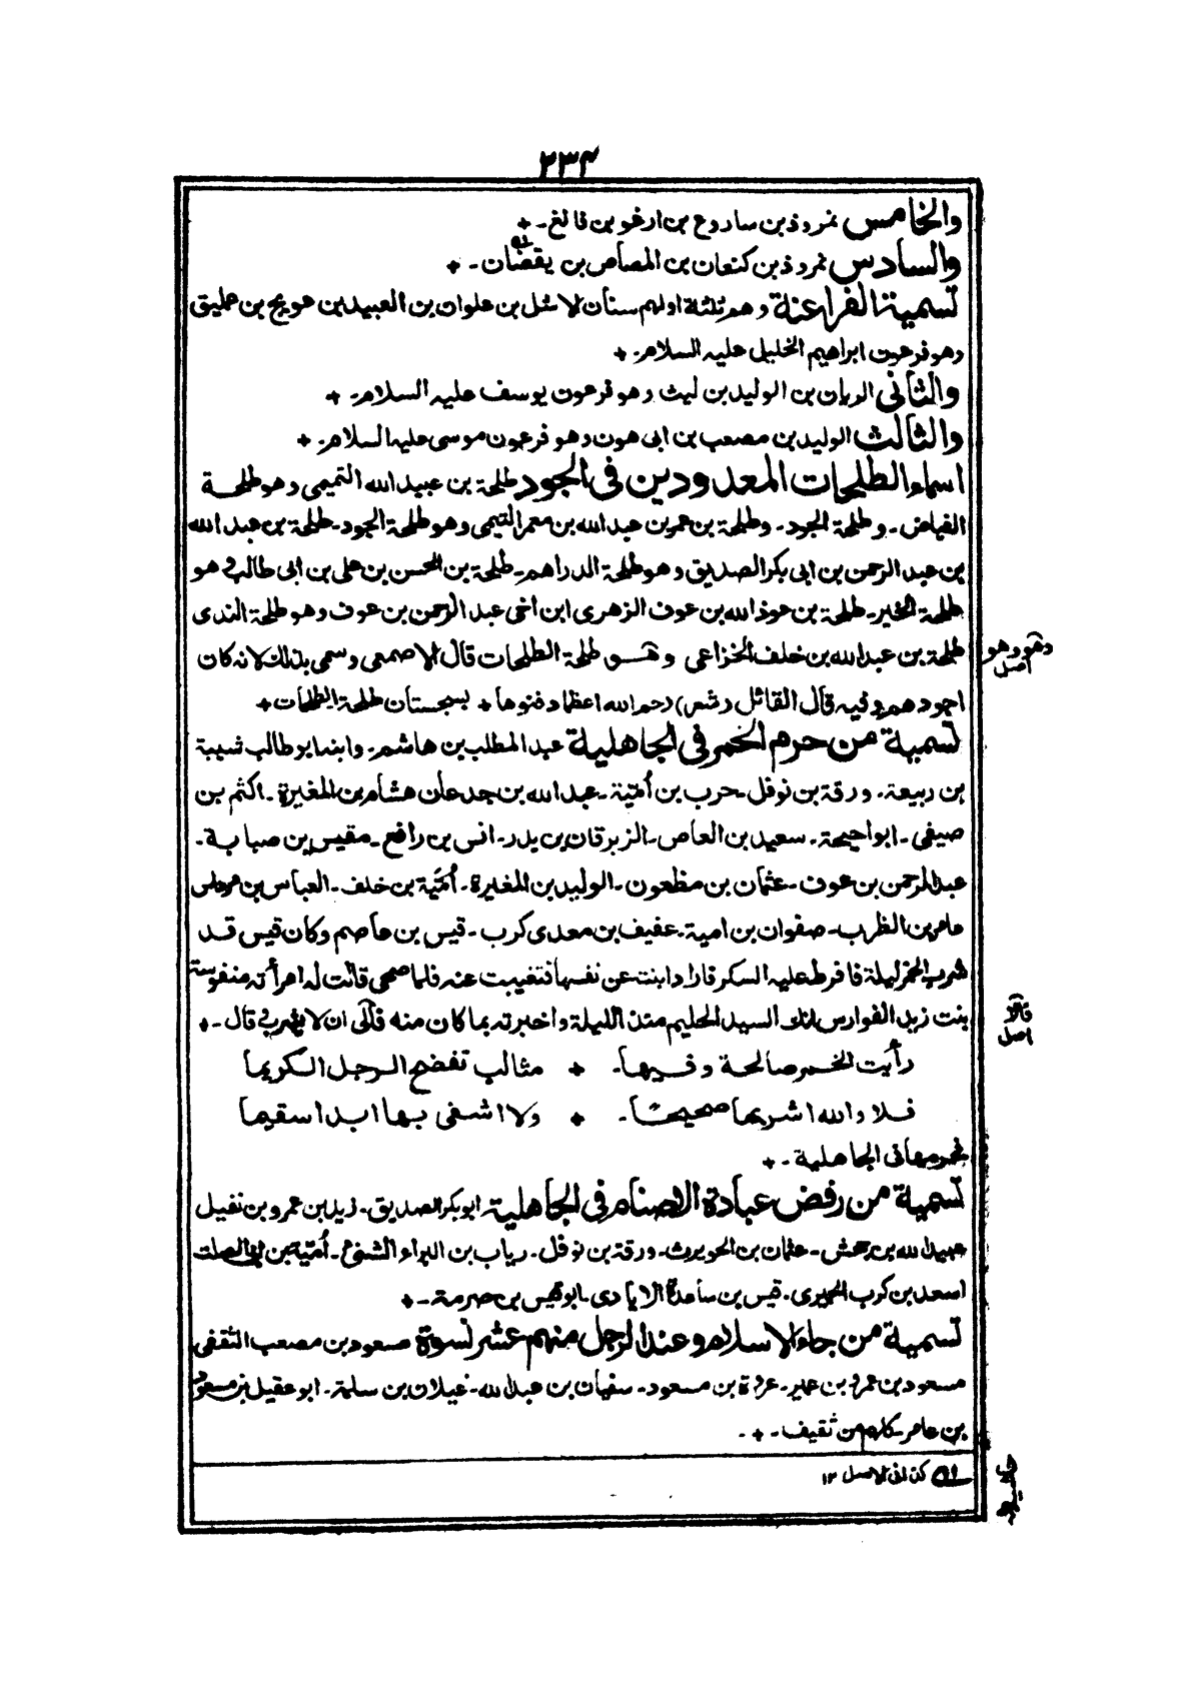 ٢٣٤
والخامس نمروذ بن ساروع بن ارغو بن فالغ -+
والسادس نمروذ بن كنعان بن المصاص بن يقضان -+
تسمية الفراعنة وهم ثلثة اولهم سنان الاشل بن علوان بن العبيد بن عويج بن عمليق
وهو فرعون ابراهيم الخليل عليه السلام +
والثانى الريان بن الوليد بن ليث وهو فرعون يوسف عليه السلام +
والثالث الوليد بن مصعب بن ابى هون وهو فرعون موسى عليه السلام +
اسماء الطلحات المعدودين فى الجود طلحة بن عبيد الله التميمى وهو طلحة
الفياض - وطلحة الجود - وطلحة بن عمر بن عبد الله بن معمر التيمى وهو طلحة الجود - طلحة بن عبد الله
بن عبد الرحمن بن ابى بكر الصديق وهو طلحة الدراهم - طلحة بن الحسن بن على بن ابى طالب وهو
طلحة الخير - طلحة بن عوذ الله بن عوف الزهرى ابن اخى عبد الرحمن بن عوف وهو طلحة الندى
طلحة بن عبد الله بن خلف الخزاعى وهو طلحة الطلحات قال الاصمعى وسمى بذلك لانه كان
وهو وهو
اصل
اجودهم وفيه قال القائل (شعر) رحم الله اعظما دفنوها + بسجستان طلحة الطلحات +
تسمية من حرم الخمر فى الجاهلية عبد المطلب بن هاشم - وابنه ابو طالب شيبة
بن ربيعة - ورقة بن نوفل - حرب بن اُميّة - عبد الله بن جدعان هشام بن المغيرة - اكثم بن
صيفى - ابو احيحة - سعيد بن العاص - الزبرقان بن بدر - انس بن رافع - مقيس بن صبابة -
عبد الرحمن بن عوف - عثمان بن مظعون - الوليد بن المغيرة - اُميّة بن خلف - العباس بن مرداس
عامر بن الظرب - صفوان بن امية - عفيف بن معدى كرب - قيس بن عاصم وكان قيس قد
شرب الخمر ليلة فافرط عليه السكر فاراد ابنته عن نفسها فتغيبت عنه فلما صحى قالت له امرأته منفوسة
بنت زيد الفوارس انك السيد الحليم منذ الليلة واخبرته بما كان منه فآلى ان لا يشرب وقال -+
اصل
رأيت الخمر صالحة وفيها - + مثالب تفضح الرجل الكريما
فلا والله اشربها صحيحًا - + ولا اشفى بها ابدا سقيما
فحرمها فى الجاهلية -+
تسمية من رفض عبادة الاصنام فى الجاهلية ابو بكر الصديق - زيد بن عمرو بن نفيل
عبيد الله بن جحش - عثمان بن الحويرث - ورقة بن نوفل - رياب بن البراء الشنى - اُميّة بن ابى الصلت
اسعد بن كرب الحميرى - قيس بن ساعدة الايادى - ابو قيس بن صرمة -+
تسمية من جاء الاسلام وعند الرجل منهم عشر نسوة مسعود بن مصعب الثقفى
مسعود بن عمرو بن عمير - عروة بن مسعود - سفيان بن عبد الله - غيلان بن سلمة - ابو عقيل بن مسعود
بن عامر - كلهم من ثقيف -+-
كذا فى الاصل ١٢